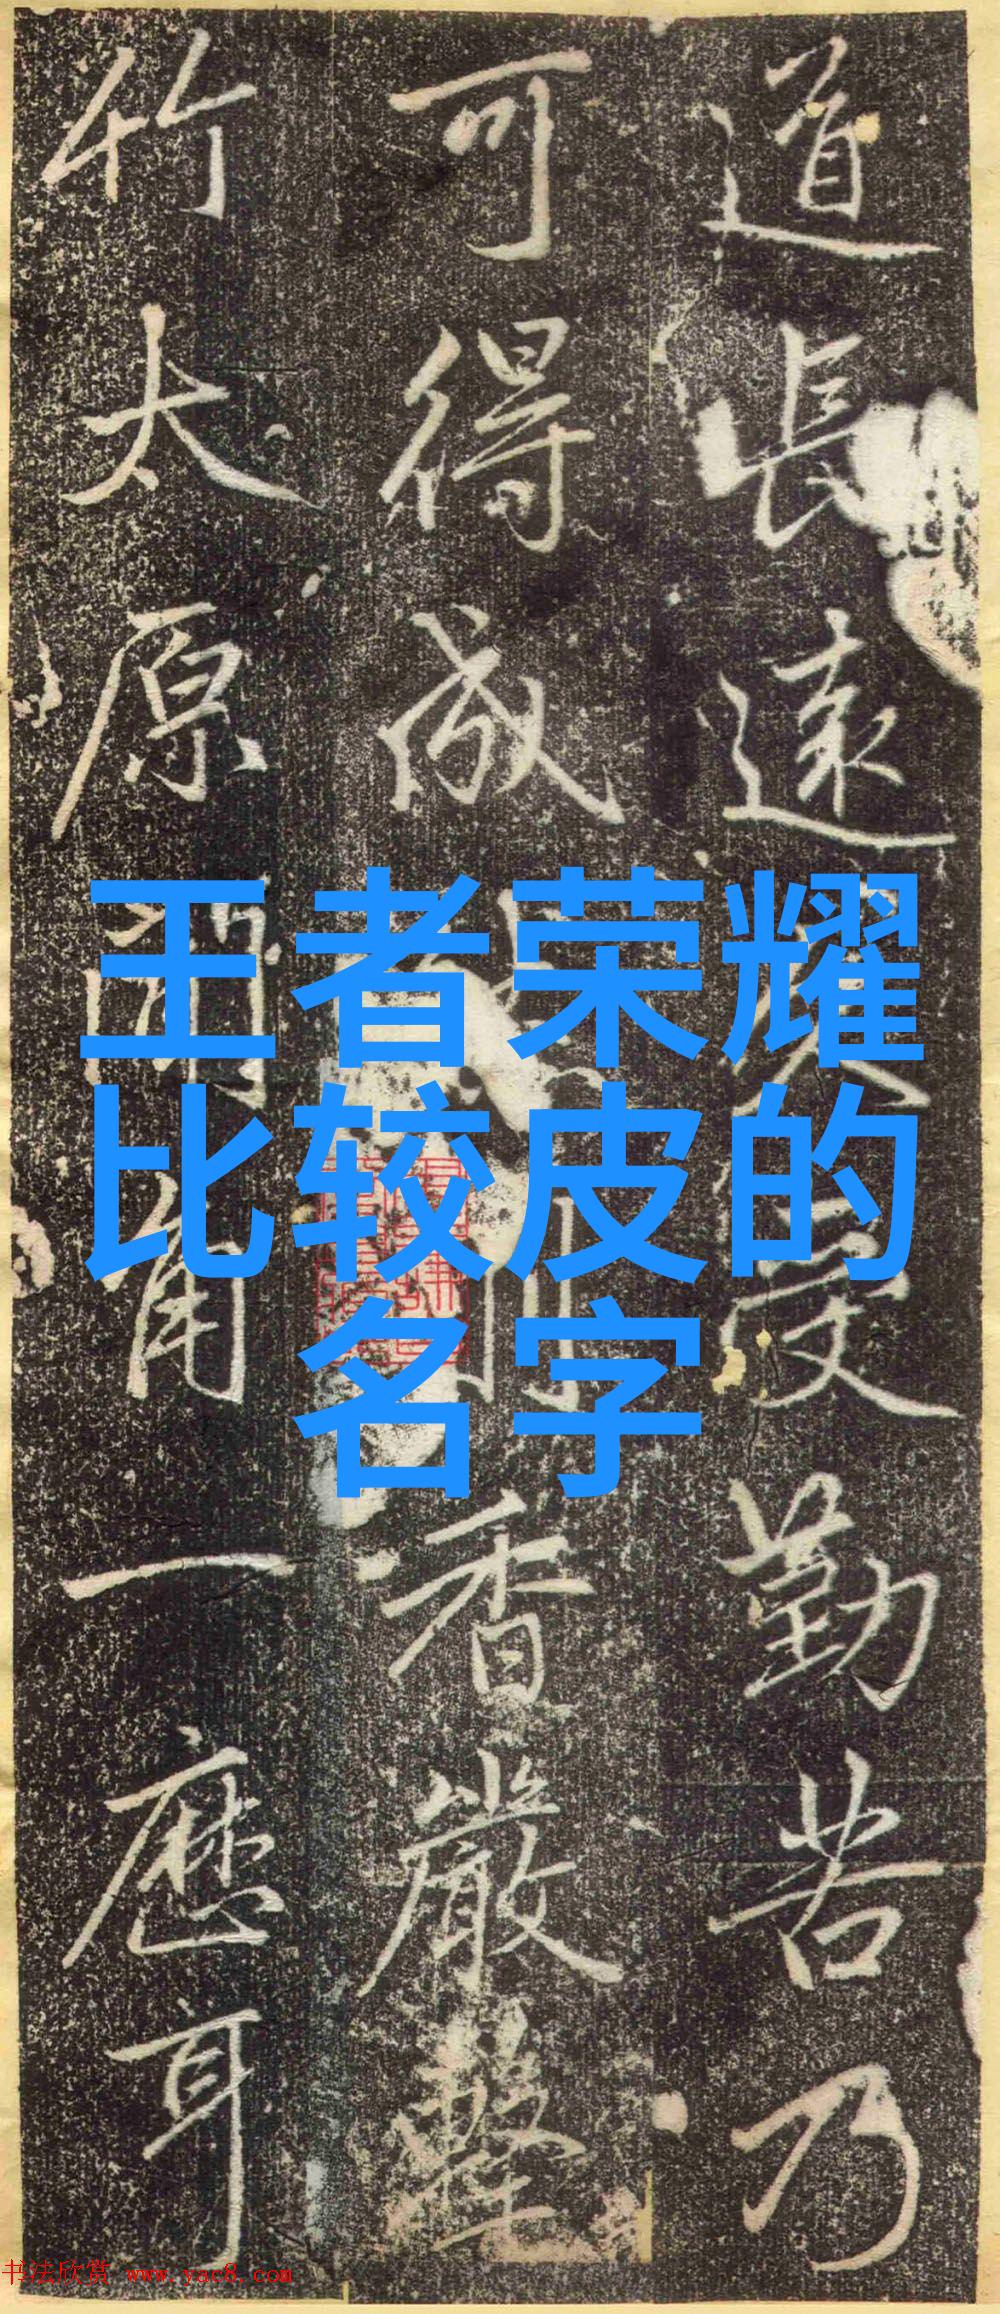 王者荣耀
比较皮的
名字
道長遠久受勤苦乃
可得成香嚴擊
竹太原聞角一應耳
书法欣赏 www.yac8.com